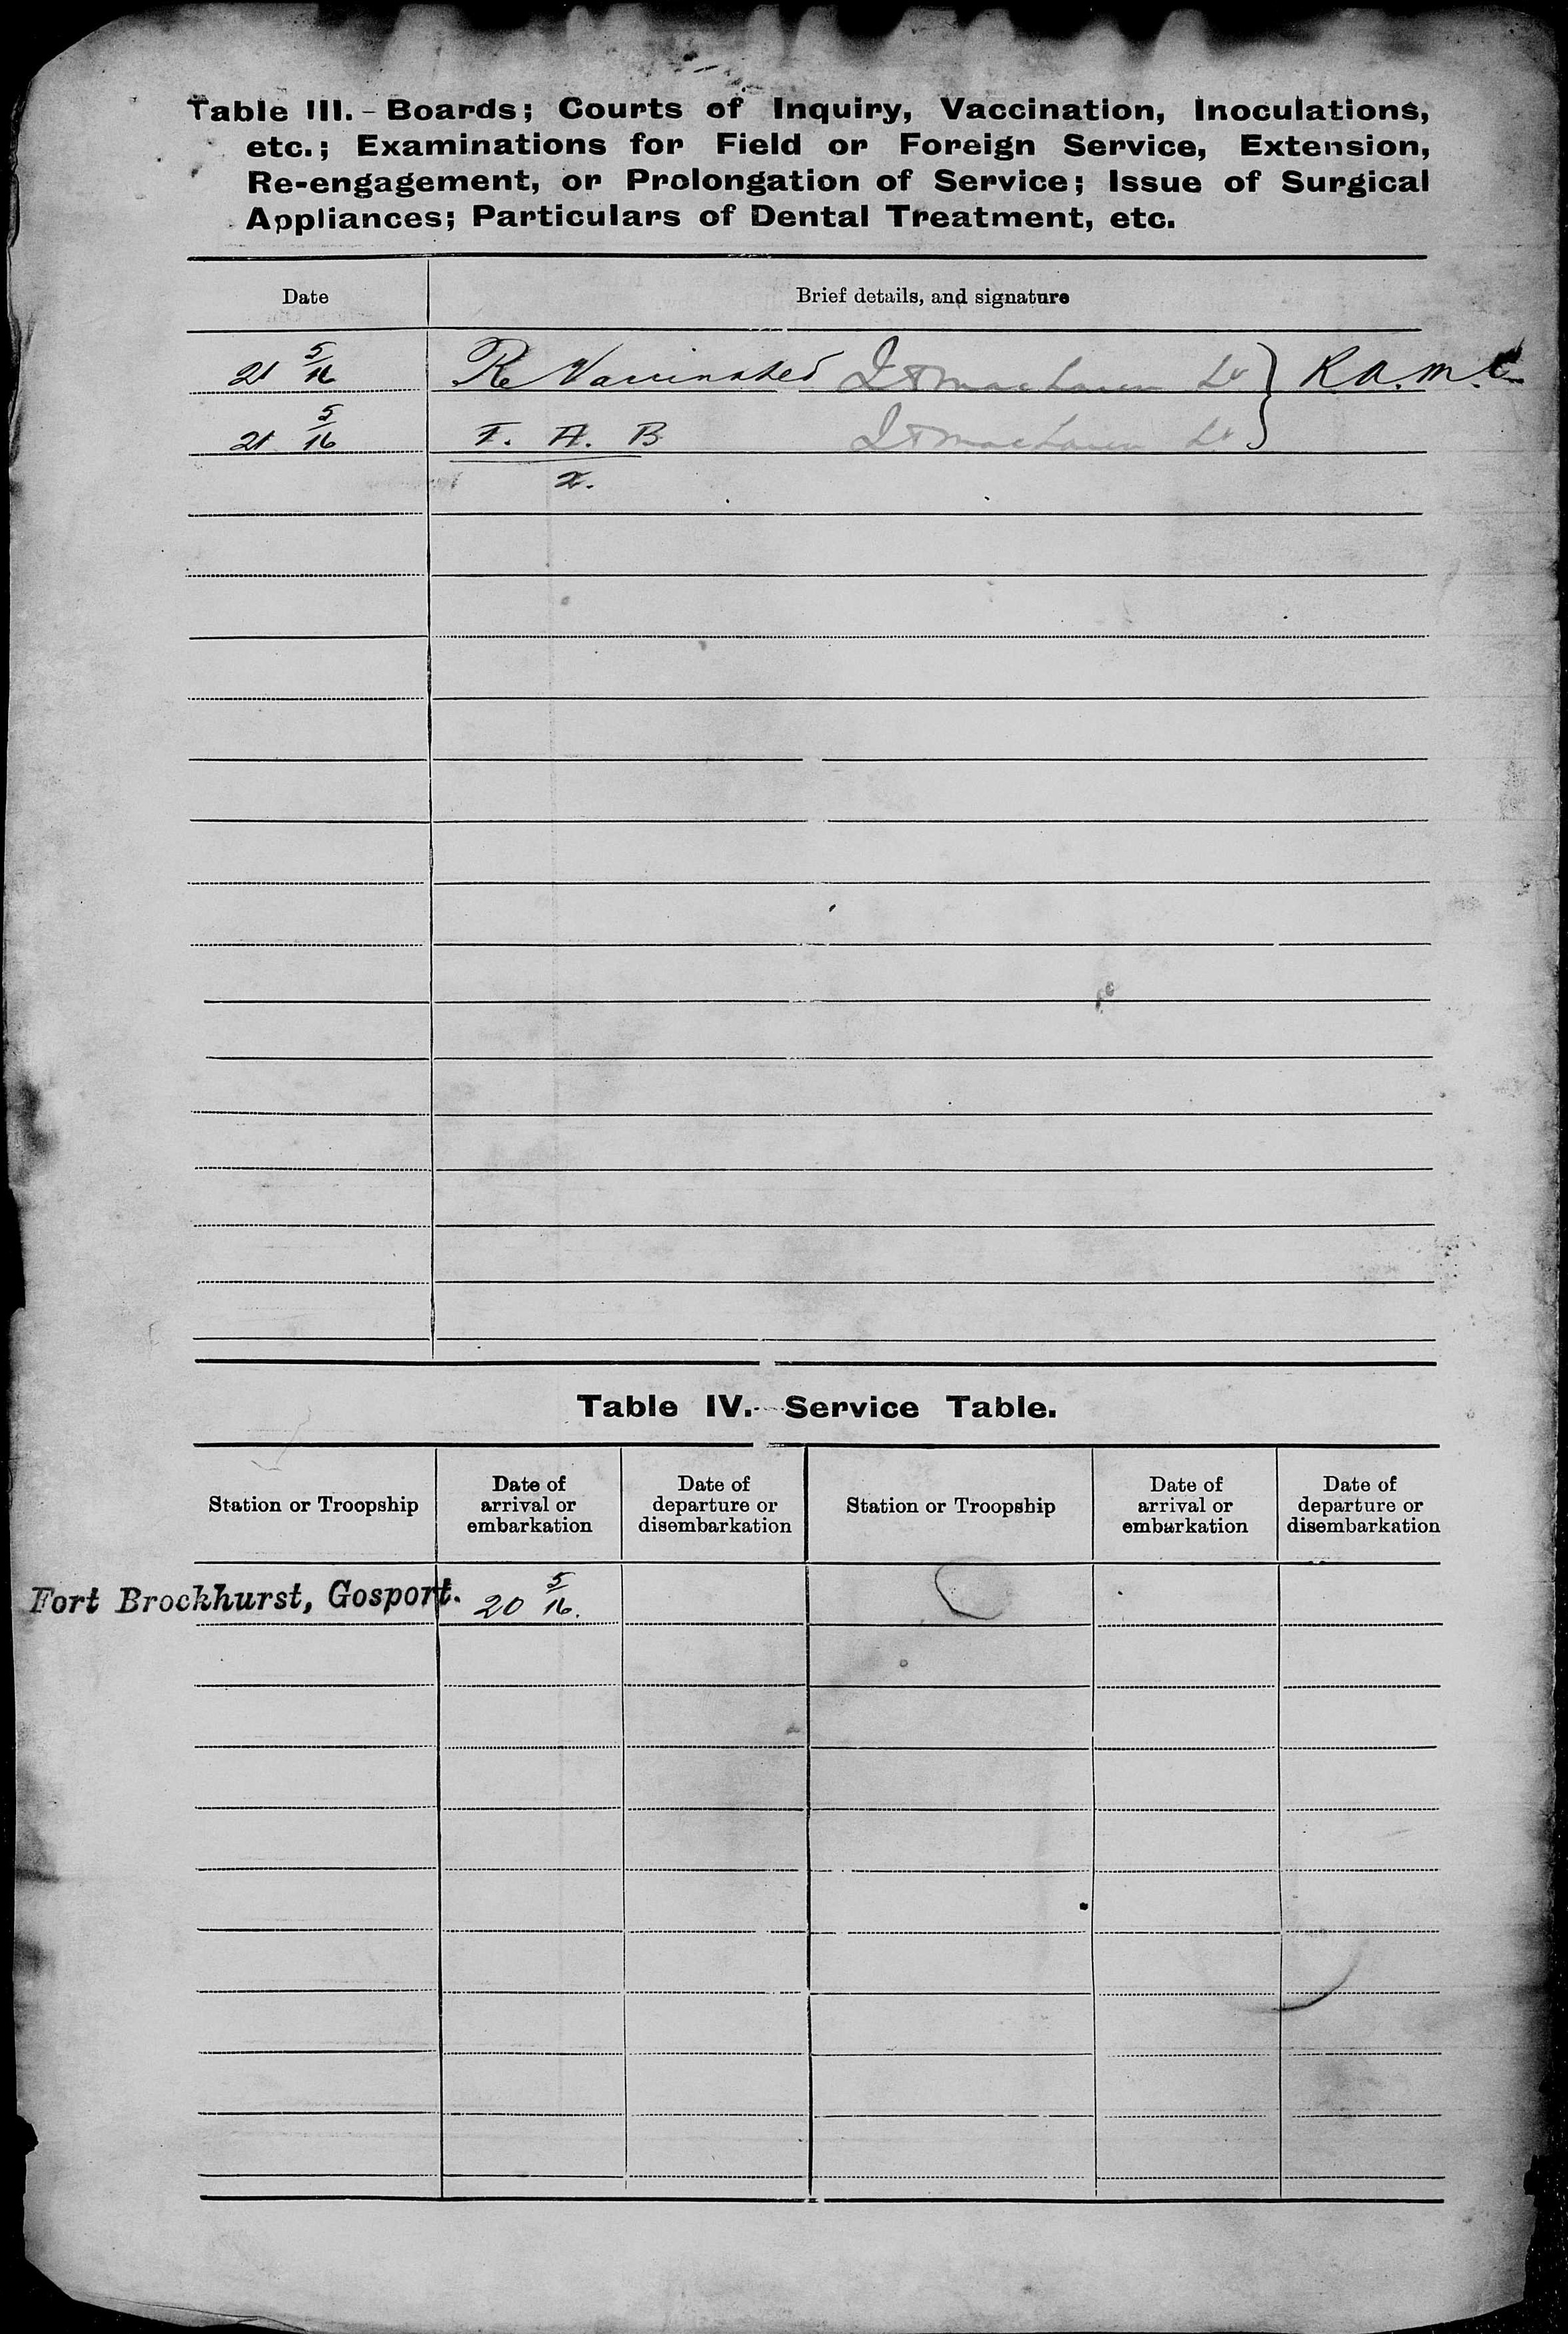 Table III. - Boards; Courts of Inquiry, Vaccination, Inoculations,
etc.; Examinations for Field or Foreign Service, Extension,
Re-engagement, or Prolongation of Service; Issue of Surgical
Appliances; Particulars of Dental Treatment, etc.
Date Brief details, and signature
21 5/16 Re Vaccinated MacLaren Lt } R.A.M.C
21 5/16 T. A. B MacLaren Lt
2.
Table IV. - Service Table.
Station or Troopship Date of arrival or embarkation Date of departure or disembarkation Station or Troopship Date of arrival or embarkation Date of departure or disembarkation
Fort Brockhurst, Gosport. 20 5/16.